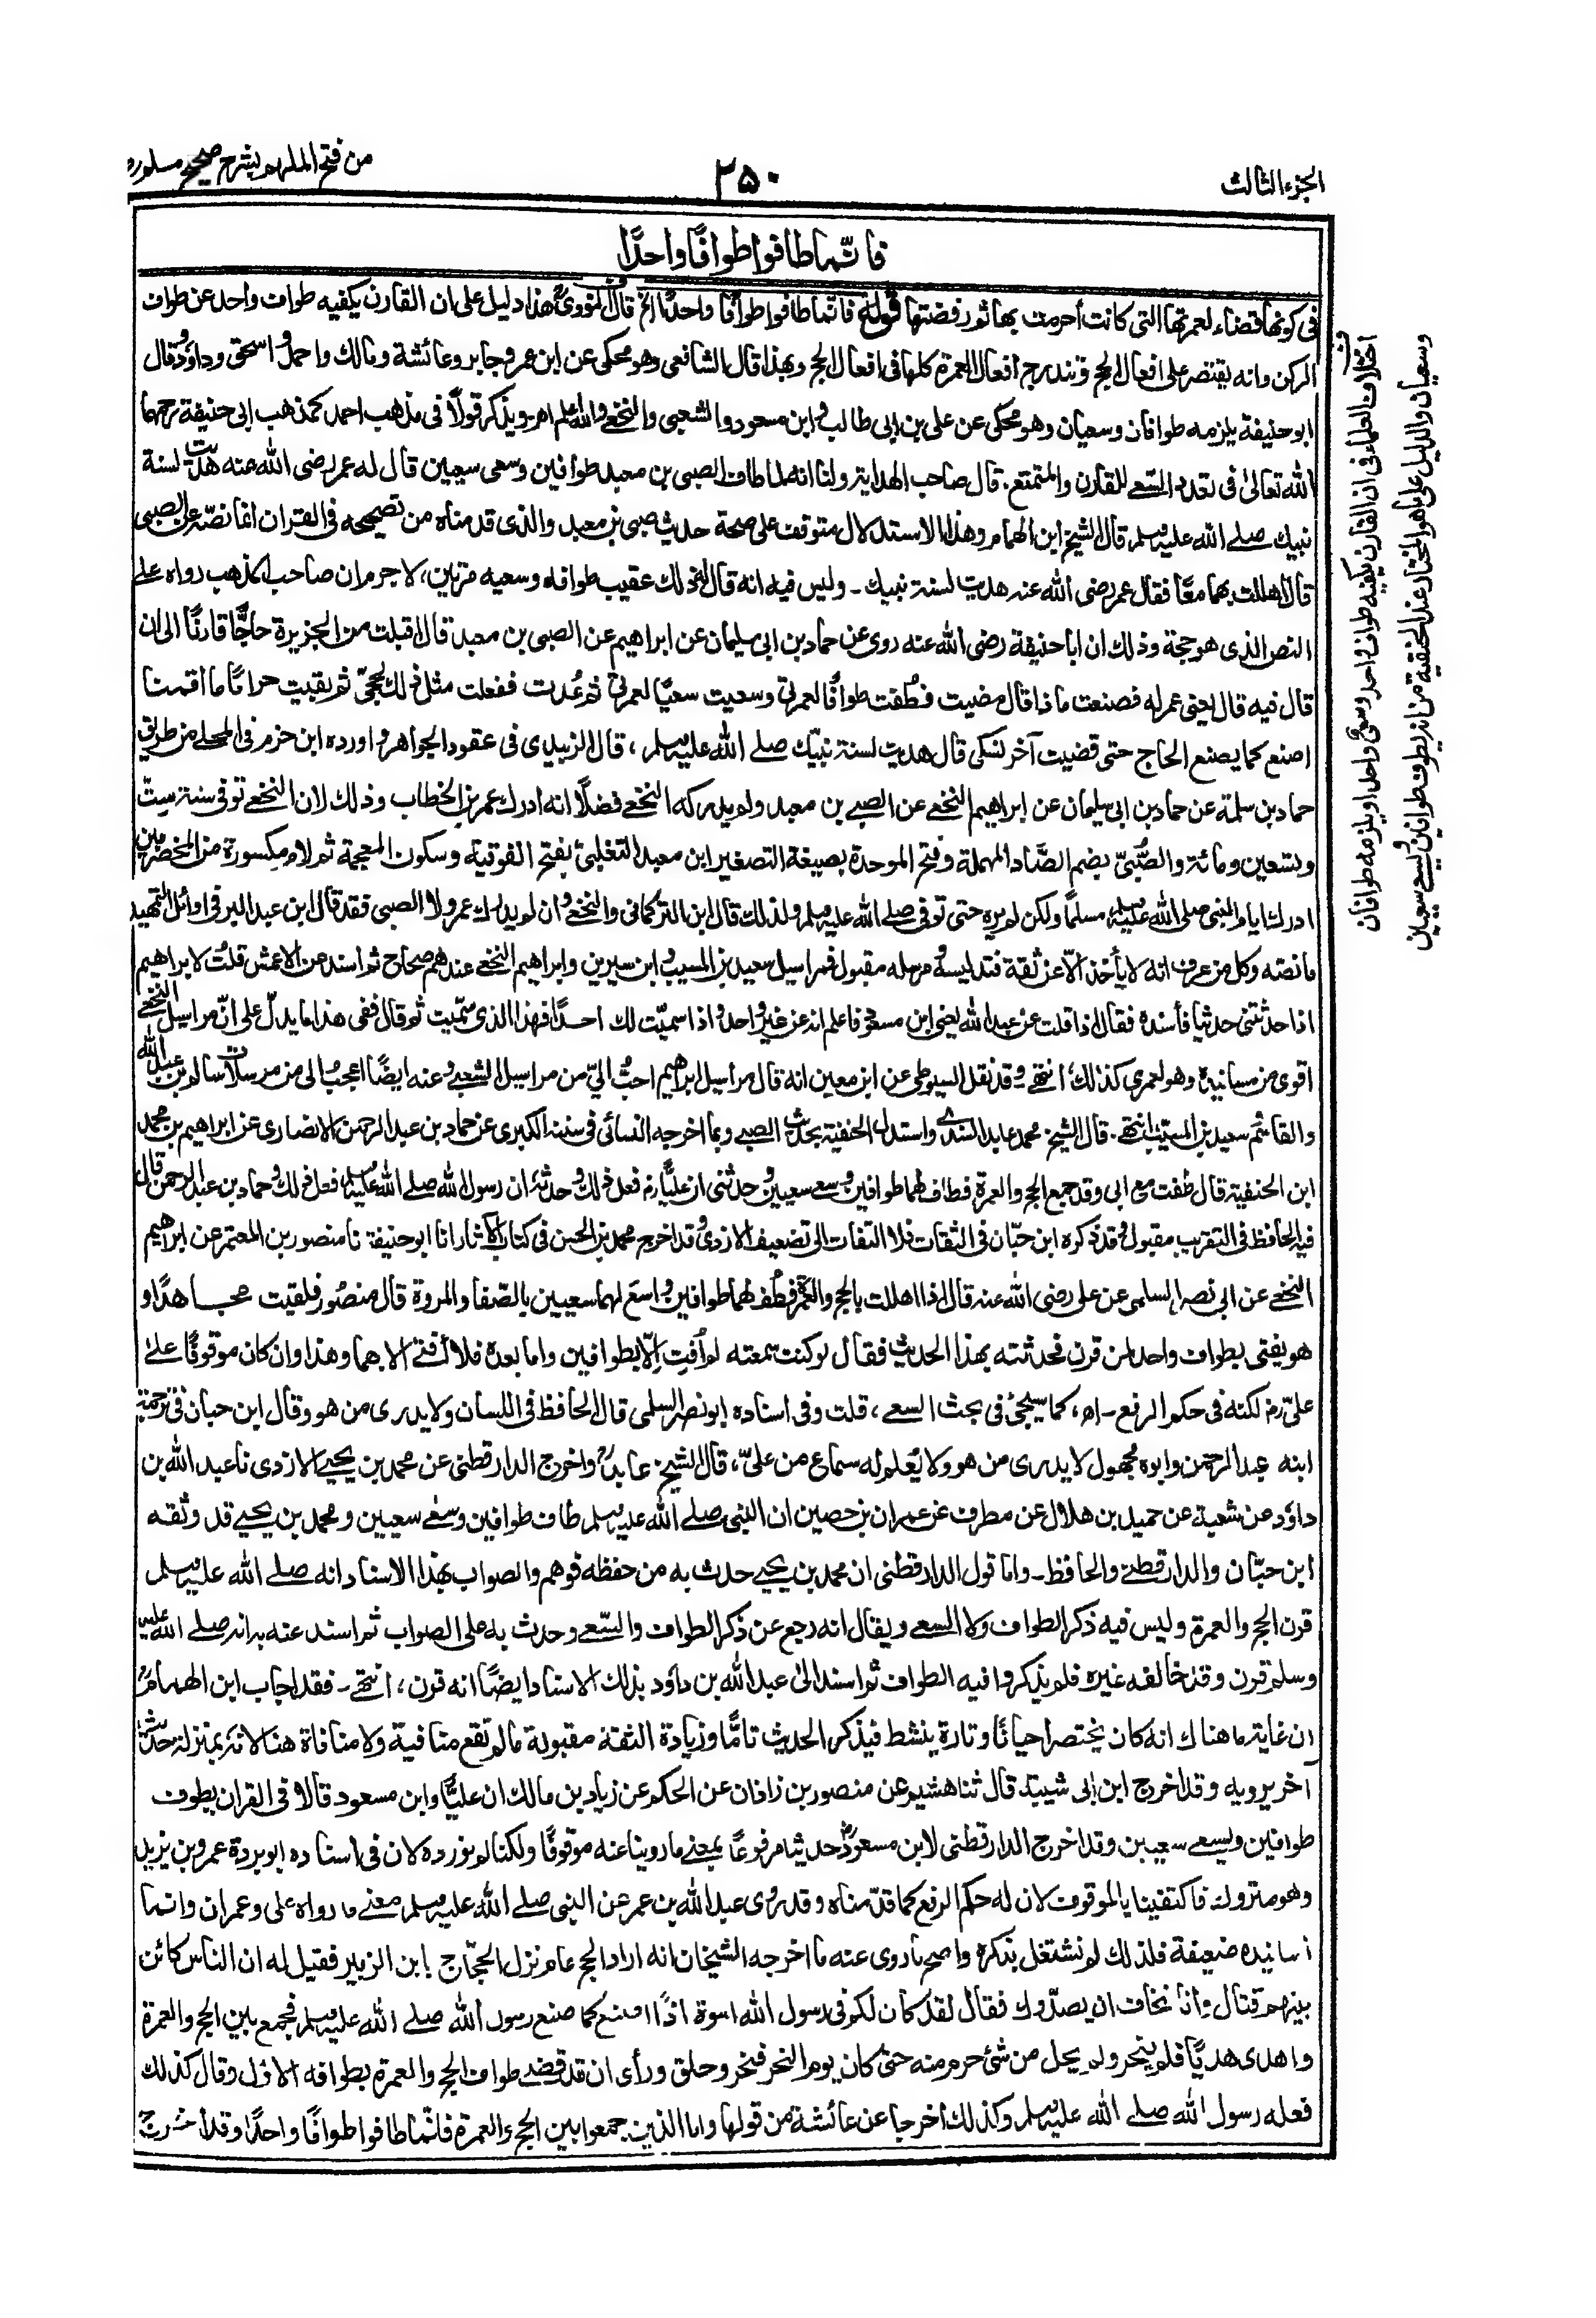 الجزء الثالث
٢٥٠
من فتح الملهم بشرح صحيح مسلم
فانما طافوا طوافًا واحدًا
فى كونها قضاء لعمرتها التى كانت أحرمت بها ثم رفضتها قوله فانما طافوا طوافًا واحدًا الخ قال النووى هذا دليل على ان القارن يكفيه طواف واحد عن طواف
الركن وانه يقتصر على افعال الحج وتندرج أفعال العمرة كلها فى افعال الحج وبهذا قال الشافعى وهو محكى عن ابن عمر وجابر وعائشة ومالك واحمد واسحق وداؤد وقال
ابو حنيفة يلزمه طوافان وسعيان وهو محكى عن على بن ابى طالب وابن مسعود والشعبى والنخعى والله اعلم اهـ ويذكر قولًا فى مذهب احمد كمذهب ابى حنيفة رحمهما
الله تعالىٰ فى تعدد السعى للقارن والمتمتع. قال صاحب الهداية ولنا انه لما طاف الصبى بن معبد طوافين وسعى سعيين قال له عمر رضى الله عنه هديت لسنة
نبيك صلى الله عليه وسلم، قال الشيخ ابن الهمام وهذا الاستدلال متوقف على صحة حديث صبى بن معبد والذى قدمناه من تصحيحه فى القران انما نصّه عن الصبى
قال اهللت بهما معًا فقال عمر رضى الله عنه هديت لسنة نبيك ـ وليس فيه انه قال له ذلك عقيب طوافه وسعيه مرتين، لا جرم ان صاحب المذهب رواه على
النص الذى هو حجة وذلك ان ابا حنيفة رضى الله عنه روى عن حماد بن ابى سليمان عن ابراهيم عن الصبى بن معبد قال اقبلت من الجزيرة حاجًّا قارنًا الى ان
قال فيه قال يعنى عمر له فصنعت ماذا قال مضيت فطُفت طوافًا لعمرتى وسعيت سعيًا لعمرتى ثم عُدت ففعلت مثل ذلك لحجى ثم بقيت حرامًا ما اقمنا
اصنع كما يصنع الحاج حتى قضيت آخر نسكى قال هديت لسنة نبيّك صلى الله عليه وسلم، قال الزبيدى فى عقود الجواهر واورده ابن حزم فى المحلى من طريق
حماد بن سلمة عن حماد بن ابى سليمان عن ابراهيم النخعى عن الصبى بن معبد ولم يدركه النخعى فضلًا انه ادرك عمر بن الخطاب وذلك لان النخعى توفى سنة ستّ
وتسعين ومائة والصُّبَىّ بضم الصّاد المهملة وفتح الموحدة بصيغة التصغير ابن معبد التغلبى بفتح الفوقية وسكون المعجمة ثم لام مكسورة من المخضرمين
ادرك ايام النبى صلى الله عليه وسلم مسلمًا ولكن لم يره حتى توفى صلى الله عليه وسلم ولذلك قال ابن التركمانى والنخعى وان لم يدرك عمر ولا الصبى فقد قال ابن عبد البر فى اوائل التمهيد
ما نصّه وكل من عرف انه لا يأخذ الّا عن ثقة فتدليسه ومرسله مقبول فمراسيل سعيد بن المسيب وابن سيرين وابراهيم النخعى عندهم صحاح ثم اسند عن الاعمش قلت لابراهيم
اذا حدثتنى حديثا فأسنده فقال اذا قلت عن عبد الله يعنى ابن مسعود فاعلم انه عن غير واحد واذا سميّت لك احدًا فهذا الذى سمّيت ثم قال ففى هذا ما يدلّ على انّ مراسيل النخعى
اقوى من مسانيده وهو لعمرى كذلك، انتهى ـ وقد نقل السيوطى عن ابن معين انه قال مراسيل ابراهيم احبُّ الىّ من مراسيل الشعبى وعنه ايضًا اعجبُ الى من مرسلات سالم بن عبد الله
والقاسم وسعيد بن المسيّب انتهى. قال الشيخ محمد عابد السندى واستدل الحنفية بحديث الصبى وبما اخرجه النسائى فى سننه الكبرى عن حماد بن عبد الرحمن الانصارى عن ابراهيم بن محمد
ابن الحنفية قال طفت مع ابى وقد جمع الحج والعمرة، فطاف لهما طوافين وسعى سعيين وحدثنى ان عليًا رض فعل ذلك وحدثه ان رسول الله صلى الله عليه وسلم فعل ذلك وحماد بن عبد الرحمن قال
فيه الحافظ فى التقريب مقبول وقد ذكره ابن حبّان فى الثقات فلا التفات الى تضعيف الازدى وقد اخرج محمد بن الحسن فى كتاب الآثار انا ابو حنيفة نا منصور بن المعتمر عن ابراهيم
النخعى عن ابى نصر السلمى عن على رضى الله عنه قال اذا اهللت بالحج والعمرة فطُف لهما طوافين واسعَ لهما سعيين بالصّفا والمروة قال منصُور فلقيت مجاهدًا و
هو يفتى بطواف واحد لمن قرن فحدثته بهذا الحديث فقال لو كنت سمعته لم أُفتِ الّا بطوافين واما بعده فلا أفتى الا بهما وهذا وان كان موقوفًا على
علىّ رض لكنه فى حكم الرفع ـ اهـ، كما سيجئ فى بحث السعى، قلت وفى اسناده ابو نصر السلمى قال الحافظ فى اللسان ولا يدرى من هو وقال ابن حبان فى ترجمة
ابنه عبد الرحمن وابوه مجهول لا يدرى من هو ولا يُعلم له سماع من علىّ، قال الشيخ عابد واخرج الدارقطنى عن محمد بن يحيى الازدى نا عبد الله بن
داؤد عن شعبة عن حميد بن هلال عن مطرف عن عمران بن حصين ان النبى صلى الله عليه وسلم طاف طوافين وسعى سعيين ومحمد بن يحيى قد وثّقه
ابن حبّان والدارقطنى والحافظ ـ واما قول الدارقطنى ان محمد بن يحيى حدث به من حفظه فوهم والصواب بهذا الاسناد انه صلى الله عليه وسلم
قرن الحج والعمرة وليس فيه ذكر الطواف ولا السعى ويقال انه رجع عن ذكر الطواف والسّعى وحدث به على الصواب ثم اسند عنه به انه صلى الله عليه
وسلم قرن وقد خالفه غيره فلم يذكروا فيه الطواف ثم اسند الىٰ عبد الله بن داؤد بذلك الاسناد ايضًا انه قرن، انتهى ـ فقد اجاب ابن الهمام
ان غاية ما هناك انه كان يختصر احيانًا وتارة ينشط فيذكر الحديث تامًّا وزيادة الثقة مقبولة ما لم تقع منافية ولا منافاة هنا لانه بمنزلة حديث
آخر يرويه وقد اخرج ابن ابى شيبة قال ثنا هشيم عن منصور بن زاذان عن الحكم عن زياد بن مالك ان عليًّا وابن مسعود قالا فى القران يطوف
طوافين ويسعى سعيين وقد اخرج الدارقطنى لابن مسعود حديثا مرفوعًا بمعنى ما روينا عنه موقوفًا ولكنا لم نورده لان فى اسناده ابو بردة عمرو بن يزيد
وهو متروك فاكتفينا بالموقوف لان له حكم الرفع كما قدّمناه وقد روى عبد الله بن عمر عن النبى صلى الله عليه وسلم معنى ما رواه على وعمران وانما
أسانيده ضعيفة فلذلك لم نشتغل بذكره واصح ما روى عنه ما اخرجه الشيخان انه اراد الحج عام نزل الحجّاج بابن الزبير فقيل له ان الناس كائن
بينهم قتال وانا نخاف ان يصدّوك فقال لقد كان لكم فى رسول الله اسوة اذًا اصنع كما صنع رسول الله صلى الله عليه وسلم فجمع بين الحج والعمرة
واهدى هديًا فلم ينحر ولم يحل من شئ حرم منه حتىٰ كان يوم النحر فنحر وحلق ورأى ان قد قضى طواف الحج والعمرة بطوافه الاول وقال كذلك
فعله رسول الله صلى الله عليه وسلم وكذلك اخرجا عن عائشة من قولها واما الذين جمعوا بين الحج والعمرة فانّما طافوا طوافًا واحدًا وقد
اختلاف العلماء فى ان القارن يكفيه طواف واحد وسعى واحد او يلزمه طوافان
وسعيان والدليل على ما هو المختار عند الحنفية من انه يطوف طوافين ويسعى سعيين